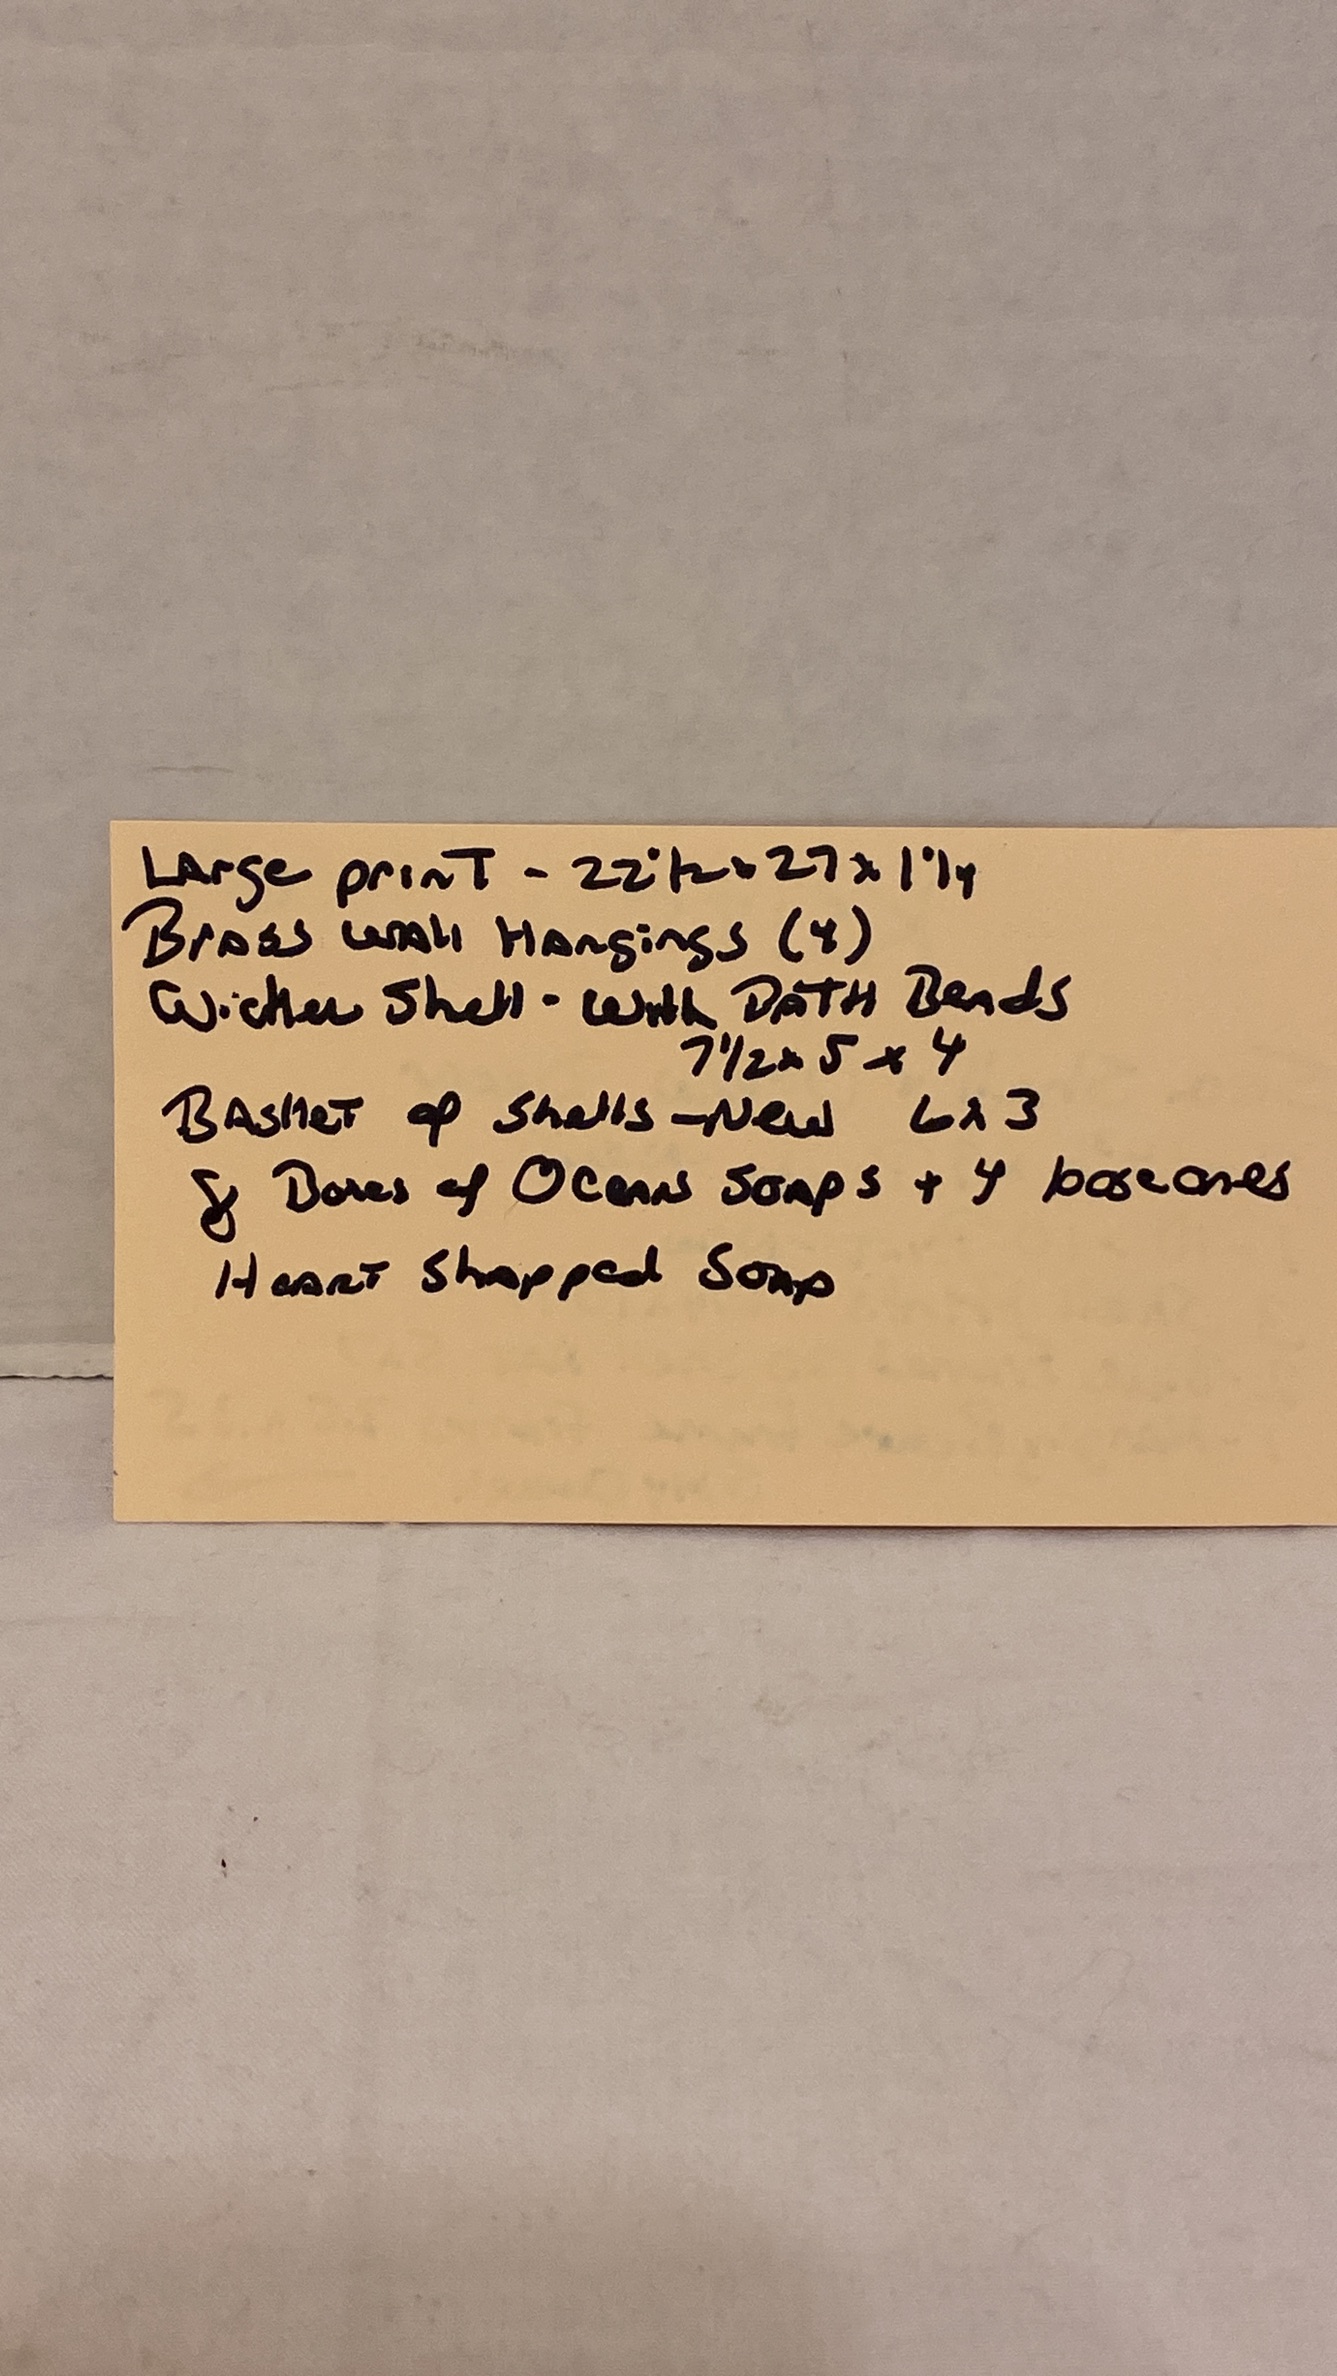 Large print - 22 1/2 x 27 x 1 1/4
Brass Wall Hangings (4)
Wicker Shell - With BATH Beads
7 1/2 x 5 x 4
Basket of Shells - New 6 x 3
8 Boxes of Oceans Soaps + 4 loose ones
Heart Shapped Soap